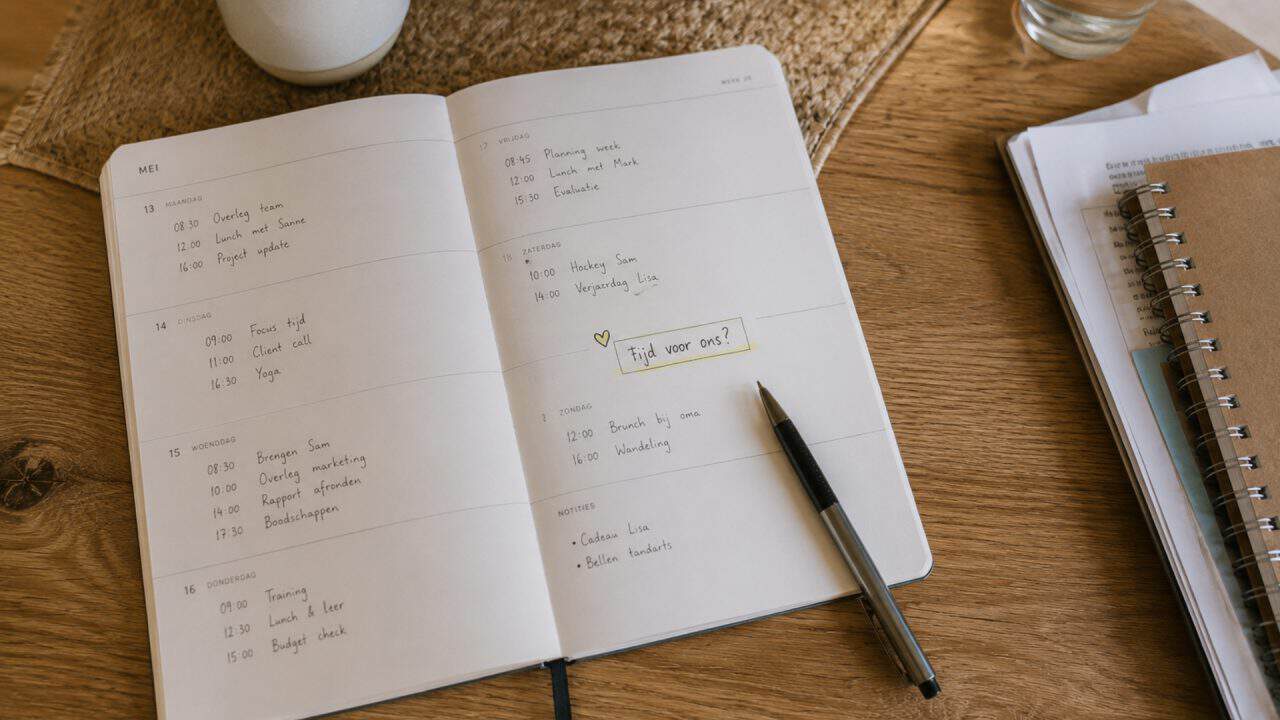 MEI
13 MAANDAG
08:30 Overleg team
12:00 Lunch met Sanne
16:00 Project update
14 DINSDAG
09:00 Focus tijd
11:00 Client call
16:30 Yoga
15 WOENDDAG
08:30 Brengen Sam
10:00 Overleg marketing
14:00 Rapport afronden
17:30 Boodschappen
16 DONDERDAG
09:00 Training
12:30 Lunch & leer
15:00 Budget check
WEEK 20
17 VRIJDAG
08:45 Planning week
12:00 Lunch met Mark
15:30 Evaluatie
18 ZATERDAG
10:00 Hockey Sam
14:00 Verjaardag Lisa
Tijd voor ons?
ZONDAG
12:00 Brunch bij oma
16:00 Wandeling
NOTITIES
• Cadeau Lisa
• Bellen tandarts